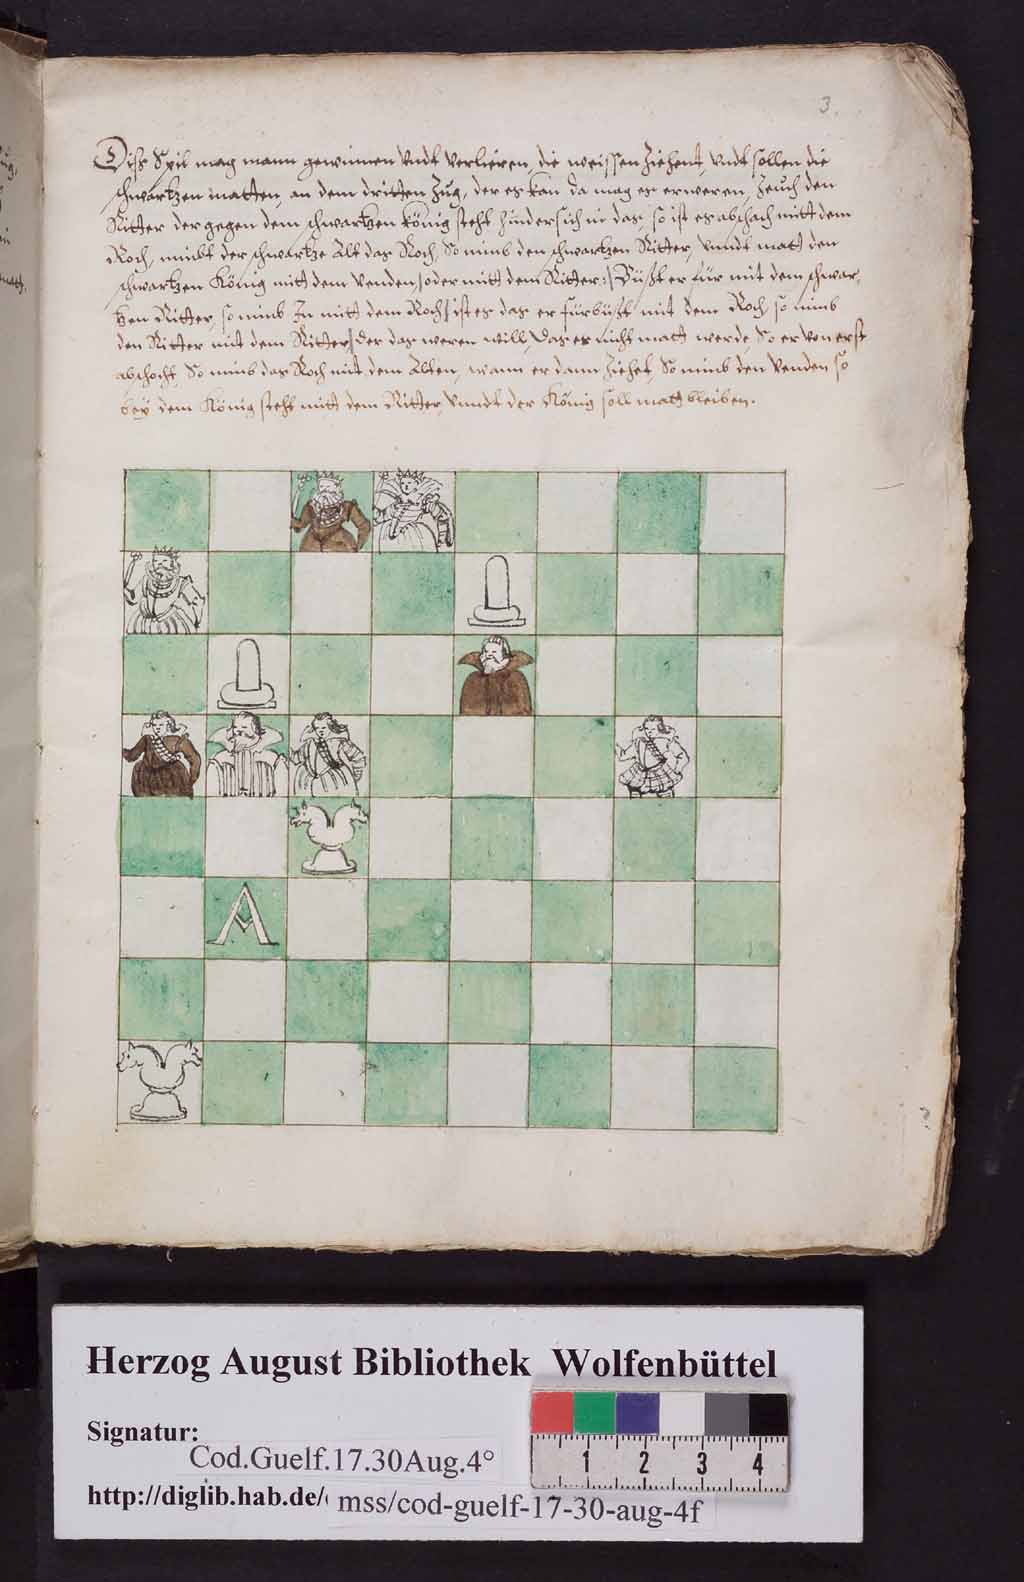 3.
Diß Spil mag mann gewinnen vndt verlieren, die weissen Ziehent, vndt sollen die
schwartzen matten, an dem dritten Zug, der es kan da mag es erweren, Zeuch den
Ritter der gegen dem schwartzen könig steht hindersich in das, so ist es abschach mitt dem
Roch, nimbt der schwartze Alt das Roch, So nimb den schwartzen Ritter, vnndt matt den
schwartzen König mitt dem Venden, oder mitt dem Ritter, Büst er für mit dem schwar-
tzen Ritter, so nimb In mitt dem Roch, ist es das er fürbüst mit dem Roch, so nimb
den Ritter mit dem Ritter, Der das weren will, Das es nicht matt werde, So er von erst
abschacht, So nimb das Roch mit dem Alten, wann er dann Ziehet, So nimb den Venden so
bey dem König steht mitt dem Ritter, vnndt der König soll matt bleiben.
A
Herzog August Bibliothek Wolfenbüttel
1 2 3 4
Signatur:
Cod.Guelf.17.30Aug.4°
http://diglib.hab.de/ mss/cod-guelf-17-30-aug-4f